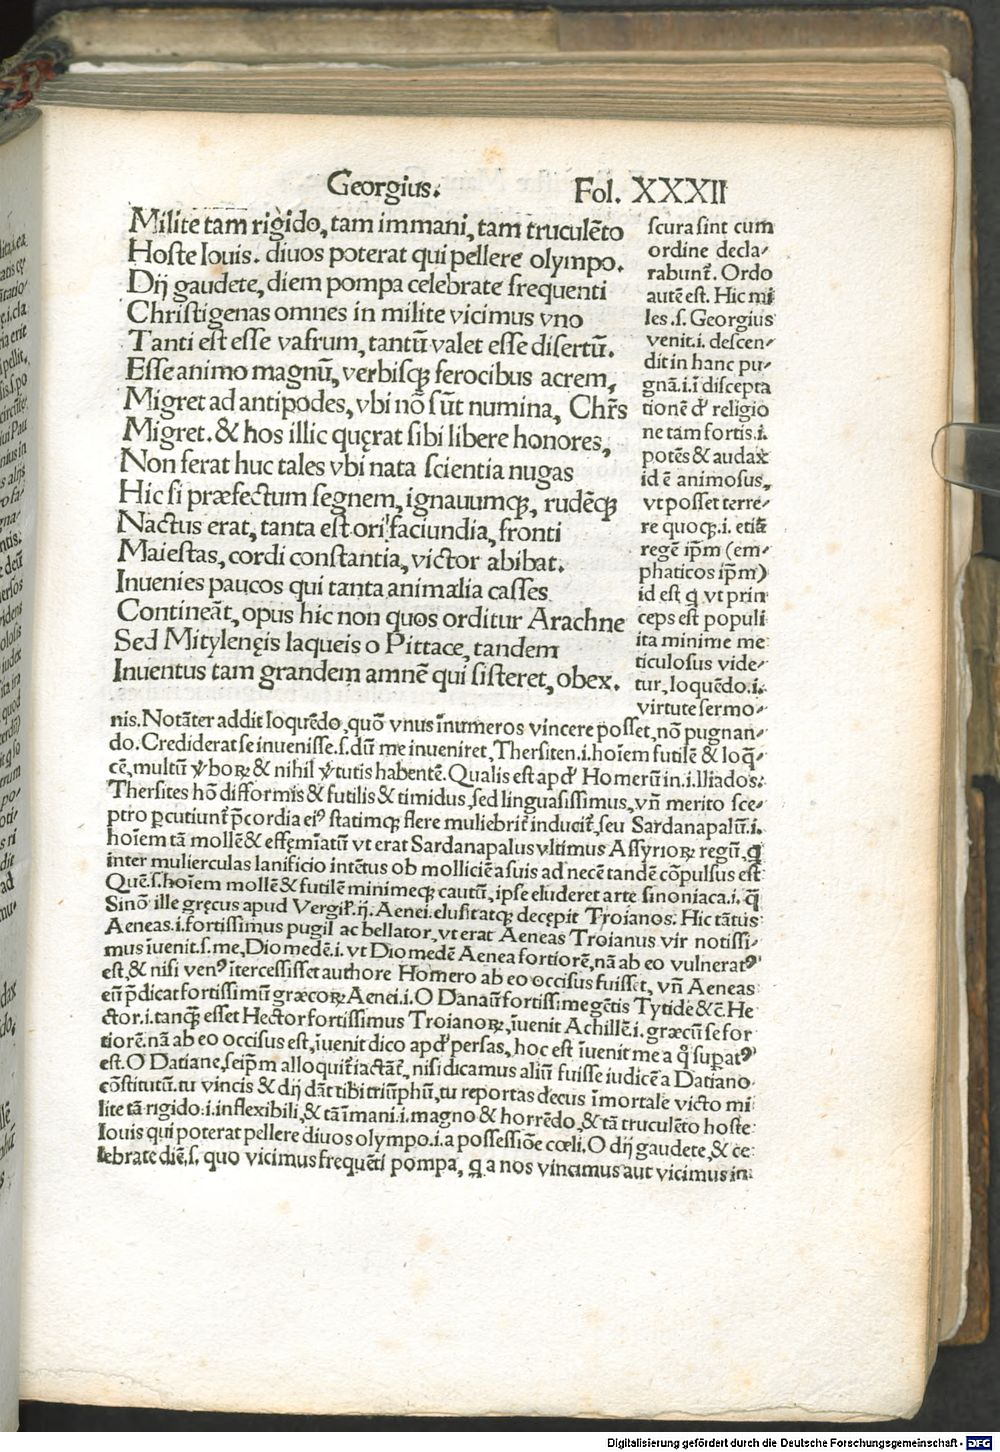 Georgius. Fol. XXXII
Milite tam rigido, tam immani, tam truculēto
Hoste Iouis. diuos poterat qui pellere olympo.
Dij gaudete, diem pompa celebrate frequenti
Christigenas omnes in milite vicimus vno
Tanti est esse vafrum, tantū valet esse disertū.
Esse animo magnū, verbisqꝫ ferocibus acrem,
Migret ad antipodes, vbi nō sūt numina, Chr̄s
Migret. & hos illic quęrat sibi libere honores,
Non ferat huc tales vbi nata scientia nugas
Hic si præfectum segnem, ignauumqꝫ, rudēqꝫ
Nactus erat, tanta est ori faciundia, fronti
Maiestas, cordi constantia, victor abibat.
Inuenies paucos qui tanta animalia casses
Contineāt, opus hic non quos orditur Arachne
Sed Mitylenęis laqueis o Pittace, tandem
Inuentus tam grandem amnē qui sisteret, obex.
scura sint cum
ordine decla-
rabunt᷑. Ordo
autē est. Hic mi
les .s. Georgius
venit.i. descen-
dit in hanc pu-
gnā.i. ī discepta
tionē d' religio
ne tam fortis.i.
potēs & audax
id ē animosus,
vt posset terre-
re quoqꝫ.i. etiā
regē ip̄m (em-
phaticos ip̄m)
id est q̨ vt prin
ceps est populi
ita minime me
ticulosus vide-
tur, loquēdo.i.
virtute sermo-
nis. Notāter addit loquēdo, quō vnus īnumeros vincere posset, nō pugnan-
do. Crediderat se inuenisse.s. dū me inueniret, Thersiten.i. hoīem futilē & loq̄-
cē, multū v̓boꝝ & nihil v̓tutis habentē. Qualis est apd' Homerū in.i. Iliados.
Thersites hō difformis & futilis & timidus, sed linguasissimus, vn̄ merito sce-
ptro ꝑcutiunt᷑ p̄cordia eiꝰ statimqꝫ flere muliebrit᷑ inducit᷑, seu Sardanapalū.i.
hoīem tā mollē & effęmīatū vt erat Sardanapalus vltimus Assyrioꝝ regū, q̨
inter mulierculas lanificio intētus ob molliciē a suis ad necē tandē cōpulsus est
Quē.s. hoīem mollē & futilē minimeqꝫ cautū, ipse eluderet arte sinoniaca.i. q̄
Sinō ille gręcus apud Vergil̓.ij. Aenei. elusit atqꝫ decępit Troianos. Hic tātus
Aeneas.i. fortissimus pugil ac bellator, vt erat Aeneas Troianus vir notissi-
mus īuenit.s. me, Diomedē.i. vt Diomedē Aenea fortiorē, nā ab eo vulneratꝰ
est, & nisi venꝰ ītercessisset authore Homero ab eo occisus fuisset, vn̄ Aeneas
eū p̄dicat fortissimū græcoꝝ Aenei.i. O Danaū fortissime gētis Tytide &c̄. He
ctor.i. tanq̄ꝫ esset Hector fortissimus Troianoꝝ, īuenit Achillē.i. græcū se for
tiorē. nā ab eo occisus est, īuenit dico apd' persas, hoc est īuenit me a q̊ supatꝰ
est. O Datiane, seip̄m alloquit᷑ iactāt᷑, nisi dicamus aliū fuisse iudicē a Datiano
cōstitutū. tu vincis & dij dāt tibi triūphū, tu reportas decus īmortale victo mi
lite tā rigido.i. inflexibili, & tā īmani.i. magno & horrēdo, & tā truculēto hoste
Iouis qui poterat pellere diuos olympo.i. a possessiōe cœli. O dij gaudete, & ce
lebrate diē, s. quo vicimus frequēti pompa, q̨ a nos vincimus aut vicimus in
Digitalisierung gefördert durch die Deutsche Forschungsgemeinschaft - DFG